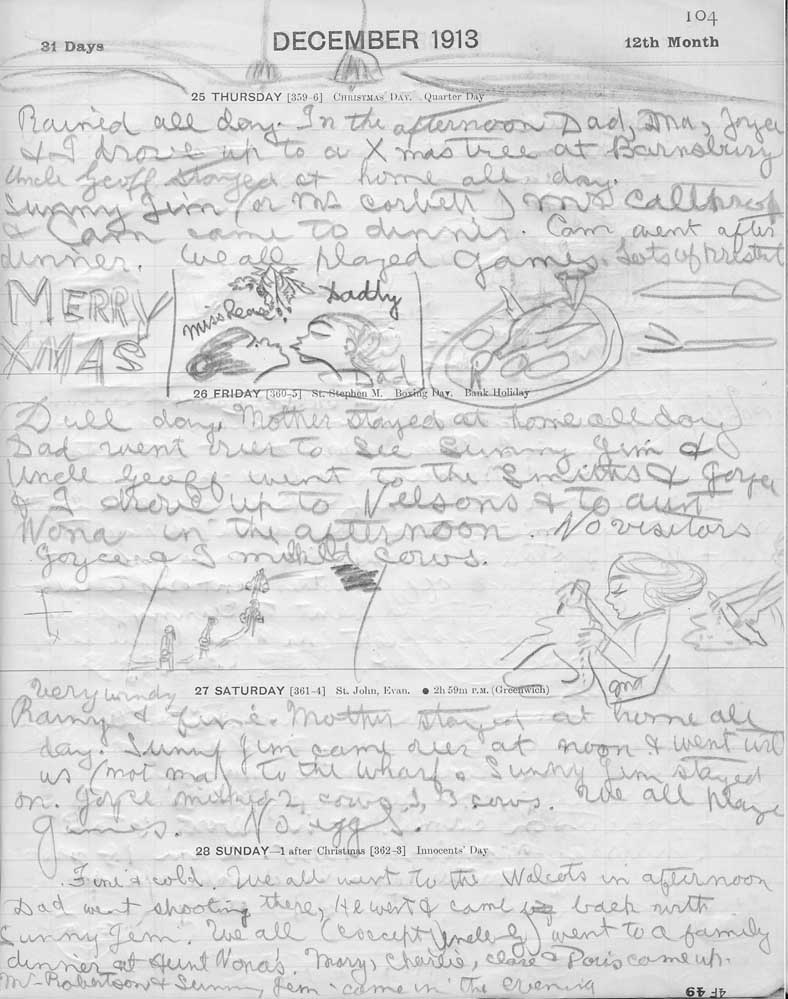 104
31 Days DECEMBER 1913 12th Month
25 THURSDAY [359-6] CHRISTMAS DAY. Quarter Day
Rained all day. In the afternoon Dad, Ma, Joyce
& I drove up to a Xmas tree at Barnsbury
Uncle Geoff stayed at home all day.
Sunny Jim (or Mr Corbett) Mrs
& Cam came to dinner. Cam went after
dinner. We all played games. Lots of presents
MERRY
XMAS
Miss
Daddy
Dad
26 FRIDAY [360-5] St. Stephen M. Boxing Day. Bank Holiday
Dull day, Mother stayed at home all day
Dad went over to see Sunny Jim &
Uncle Geoff went to the Smiths & Joyce
& I drove up to Nelsons & to aunt
Nona in the afternoon. No visitors
Joyce & I milked cows.
27 SATURDAY [361-4] St. John, Evan. ● 2h 59m P.M. (Greenwich)
very windy
Rainy & fine. Mother stayed at home all
day. Sunny Jim came over at noon & went with
us (not ma) to the wharf. Sunny Jim stayed
on. Joyce milked 2 cows I, 3 cows. We all played
games. No eggs.
28 SUNDAY—1 after Christmas [362-3] Innocents' Day
Fine & cold. We all went to the Walcots in afternoon
Dad went shooting there, He went & came back with
Sunny Jem. We all (except Uncle G) went to a family
dinner at Aunt Nona's. Mary, Charlie, & Doris came up.
Mr Robertson & Sunny Jem came in the evening
4F 49